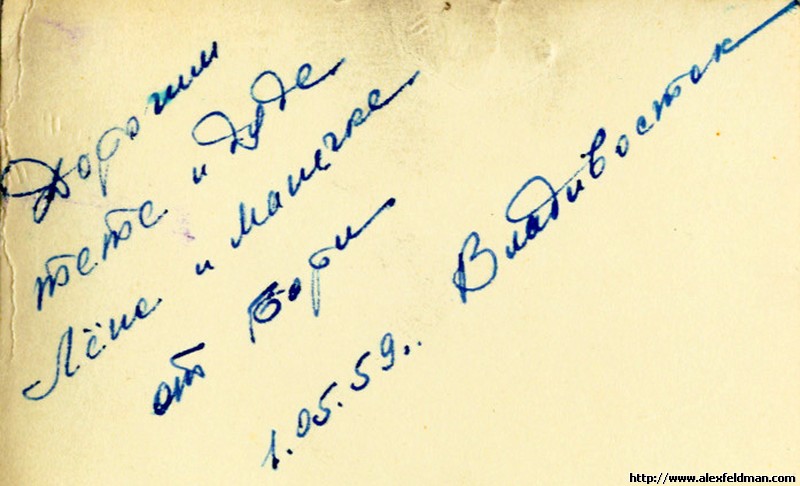 Дорогим
тете и дяде
Лёне и Манечке
от Бори
1.05.59г. Владивосток
http://www.alexfeldman.com